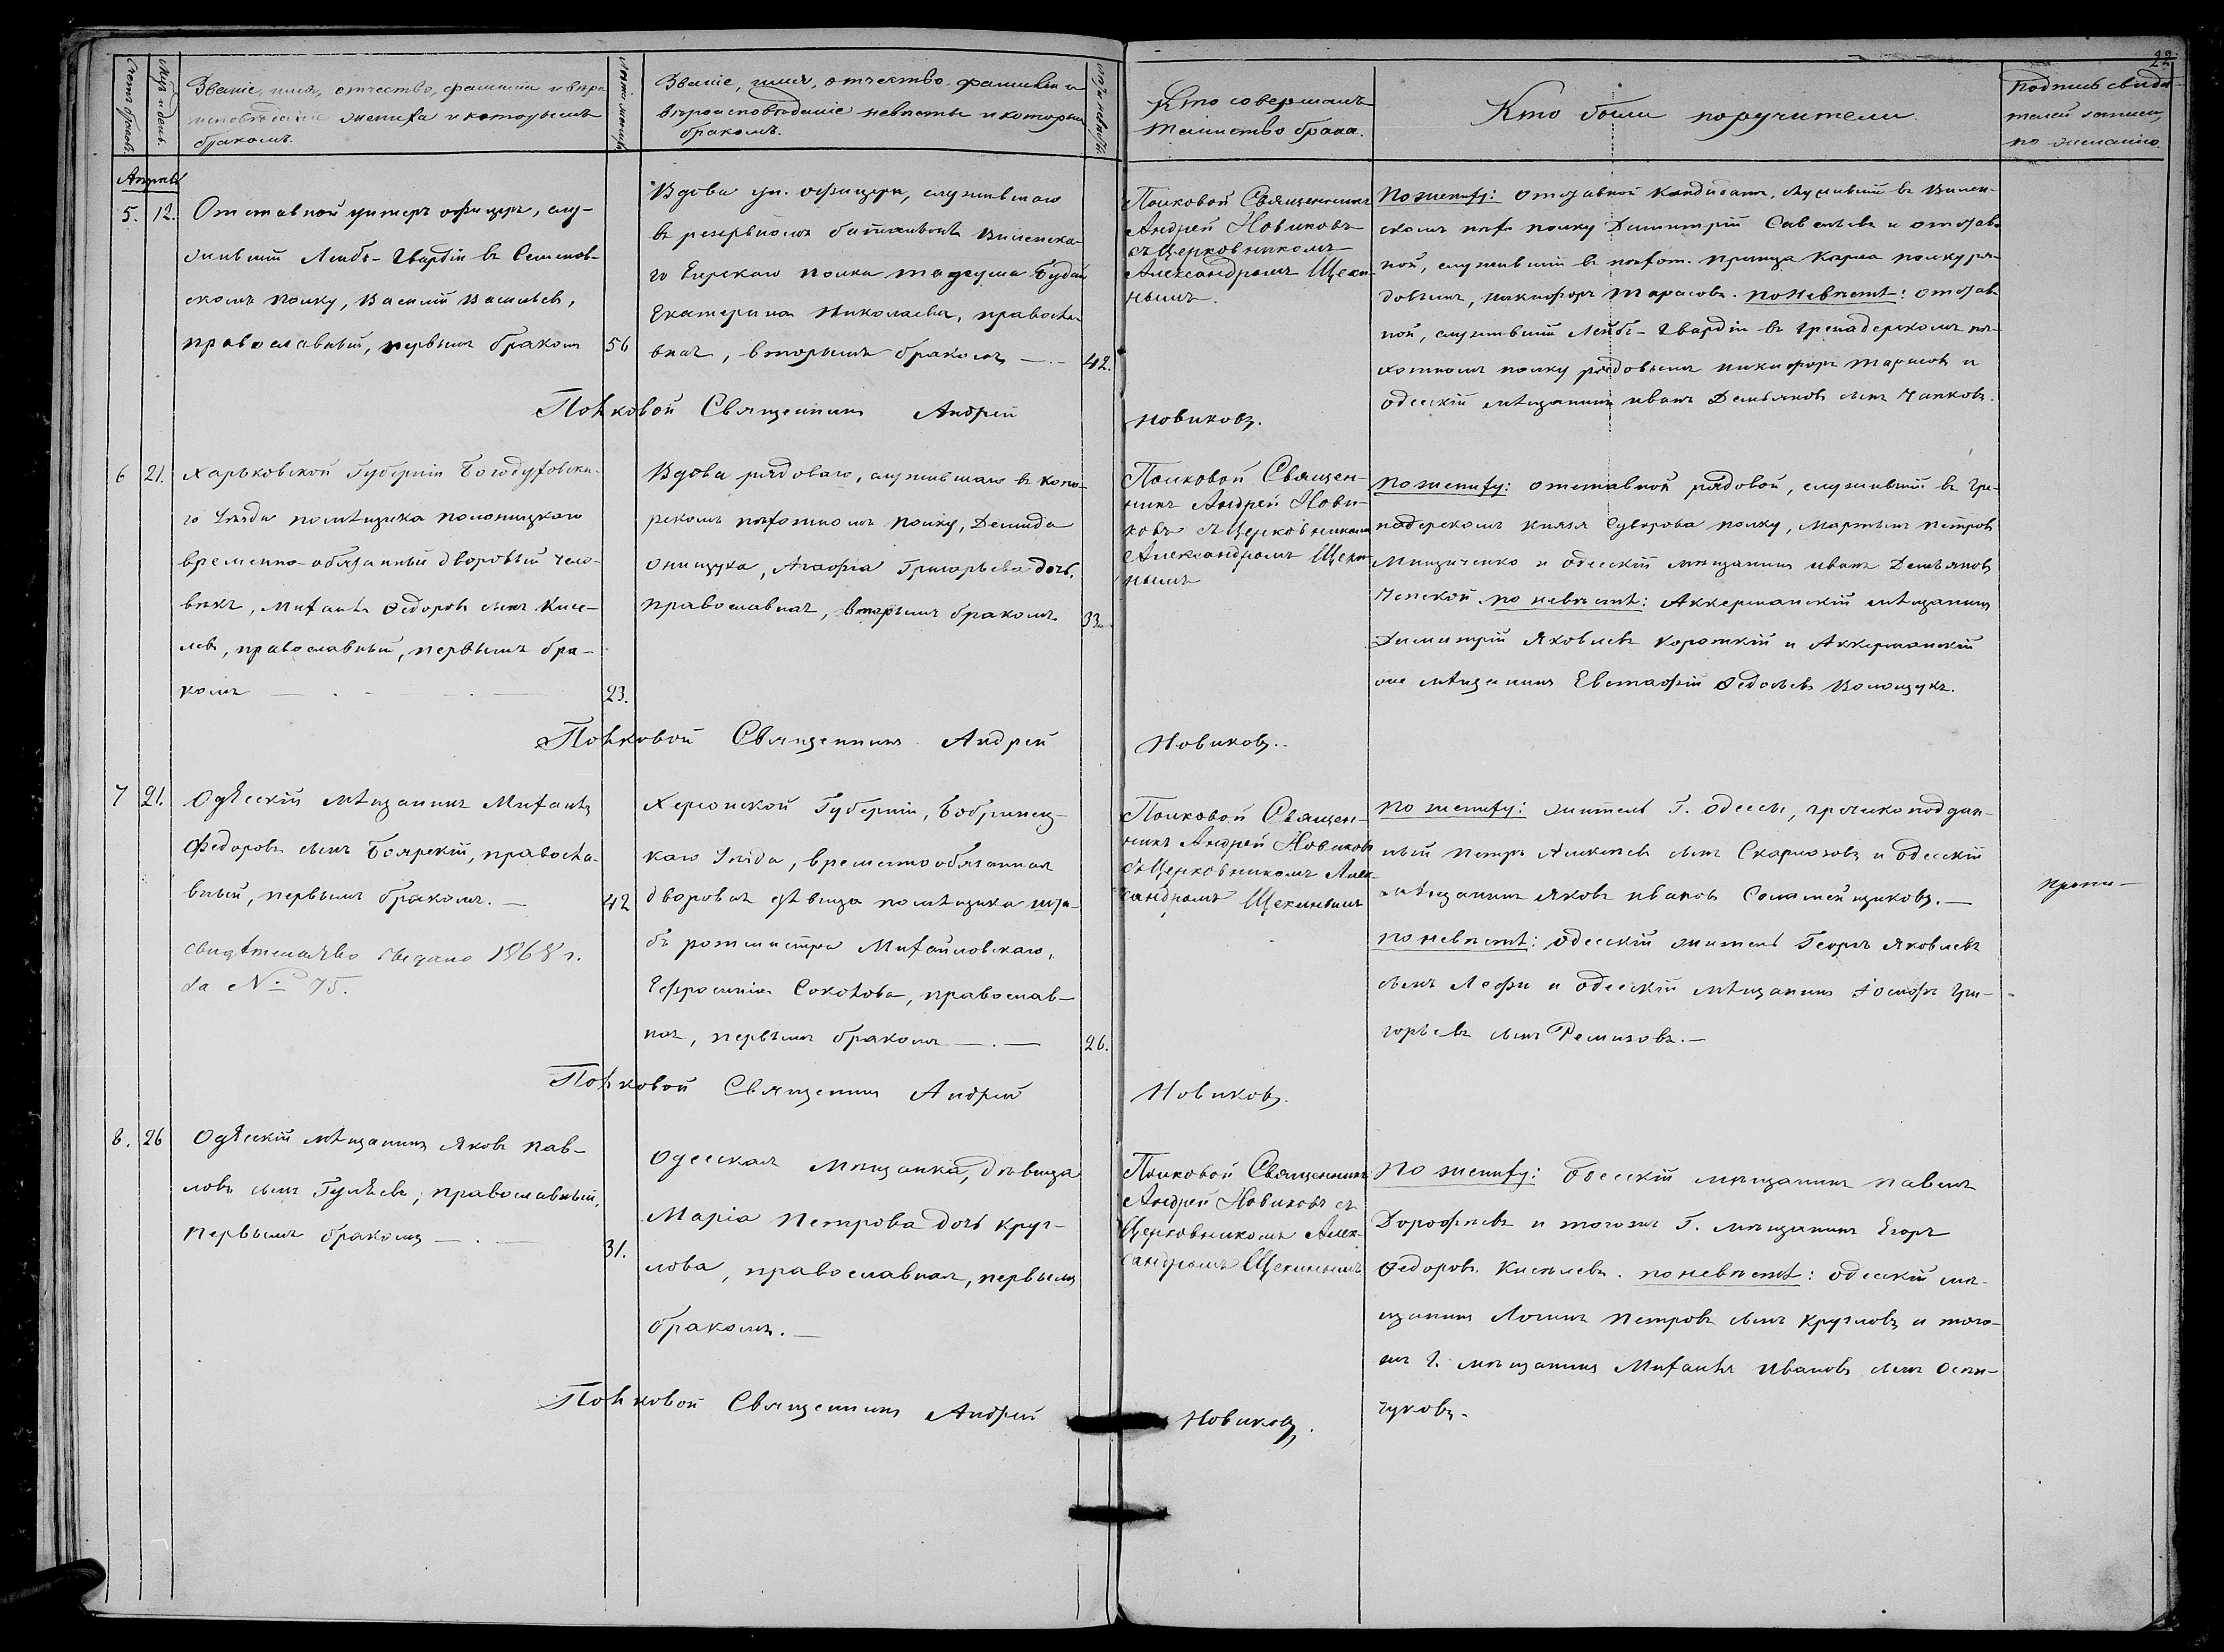 22.
Счетъ браковъ.
Мѣс. и день.
Званіе, имя, отчество, фамилія и вѣро
исповѣданіе жениха и которымъ
бракомъ.
Лѣта жениха
Званіе, имя, отчество, фамилія и
вѣроисповѣданіе невѣсты и которым
бракомъ.
Лѣта невѣсты
Кто совершалъ
таинство брака.
Кто были поручители.
Подпись свидѣ-
телей записи
по желанію.
Апрѣль
5. 12.
Отставной унтеръ офицеръ, слу-
жившій Лейбъ-Гвардіи въ Семенов-
скомъ полку, Василій Васильевъ,
православный, первымъ бракомъ
56
Вдова ун. офицера, служившаго
въ резервномъ баталіонѣ Виленска-
го Егерскаго полка
Екатерина Николаева, правосла-
вная, вторымъ бракомъ —.—
42.
Полковой Священникъ
Андрей Новиковъ
съ Церковникомъ
Александромъ Щеки-
нымъ.
По жениху: отставной кандидатъ, служившій въ Вилен-
скомъ пѣх. полку Димитрій Савельевъ и отстав-
ной, служившій въ пѣхот. принца Карла полку ря-
довымъ, Никифоръ Тарасовъ. по невѣстѣ: отстав
ной, служившій Лейбъ-Гвардіи въ Гренадерскомъ пѣ-
хотномъ полку рядовымъ Никифоръ Тарасовъ и
одесскій мѣщанинъ Иванъ Демьяновъ сынъ Чапковъ.
Полковой Священникъ Андрей Новиковъ.
6 21.
Харьковской Губерніи Богодуховска-
го Уѣзда помѣщика
временно-обязанный дворовый чело-
вѣкъ, Михаилъ Федоровъ сынъ Кисе-
левъ, православный, первымъ бра-
комъ — . — . —
23.
Вдова рядоваго, служившаго въ Копо-
рскомъ пѣхотномъ полку, Демида
Онищука, Агафія Григорьева дочь,
православная, вторымъ бракомъ
33.
Полковой Священ-
никъ Андрей Нови-
ковъ съ Церковникомъ
Александромъ Щеки-
нымъ
По жениху: отставной рядовой, служившій въ Гре-
надерскомъ князя Суворова полку, Мартынъ Петровъ
и одесскій мѣщанинъ Иванъ Демьяновъ
по невѣстѣ: Аккерманскій мѣщанинъ
Димитрій Яковлевъ Короткій и Аккерманскій
же мѣщанинъ Евстафій Федоровъ Волощукъ.
Полковой Священникъ Андрей Новиковъ..
7 21.
Одесскій мѣщанинъ Михаилъ
Федоровъ сынъ Боярскій, правосла-
вный, первымъ бракомъ. —
42
свидѣтельство выдано 1868 г.
за № 75.
Херсонской Губерніи, Бобринец-
каго Уѣзда, временнообязанная
дворовая дѣвица помѣщика шта-
бъ ротмистра Михайловскаго,
Ефросинія Соколова, православ-
ная, первымъ бракомъ —.—
26.
Полковой Священ-
никъ Андрей Новиковъ
съ Церковникомъ Алек-
сандромъ Щекинымъ
по жениху: житель Г. Одессы, греческоподдан-
ный Петръ Алексѣевъ сынъ и одесскій
мѣщанинъ Яковъ Ивановъ —
по невѣстѣ: одесскій житель Георгъ Яковлевъ
сынъ Лефи и одесскій мѣщанинъ Іосифъ Гри-
горьевъ сынъ Ремизовъ.—
Полковой Священникъ Андрей Новиковъ.
8. 26
Одесскій мѣщанинъ Яковъ Пав-
ловъ сынъ Гулѣевъ, православный,
первымъ бракомъ —.—
31.
Одесская мѣщанка, дѣвица
Марія Петрова дочь Круг-
лова, православная, первымъ
бракомъ.—
Полковой Священникъ
Андрей Новиковъ съ
Церковникомъ Алек-
сандромъ Щекинымъ
По жениху: Одесскій мѣщанинъ Павелъ
Дорофѣевъ и тогожъ Г. мѣщанинъ Егоръ
Федоровъ Киселевъ. по невѣстѣ: одесскій мѣ-
щанинъ Логинъ Петровъ сынъ Кругловъ и того-
жъ Г. мѣщанинъ Михаилъ Ивановъ сынъ Оси-
чуковъ.
Полковой Священникъ Андрей Новиковъ.